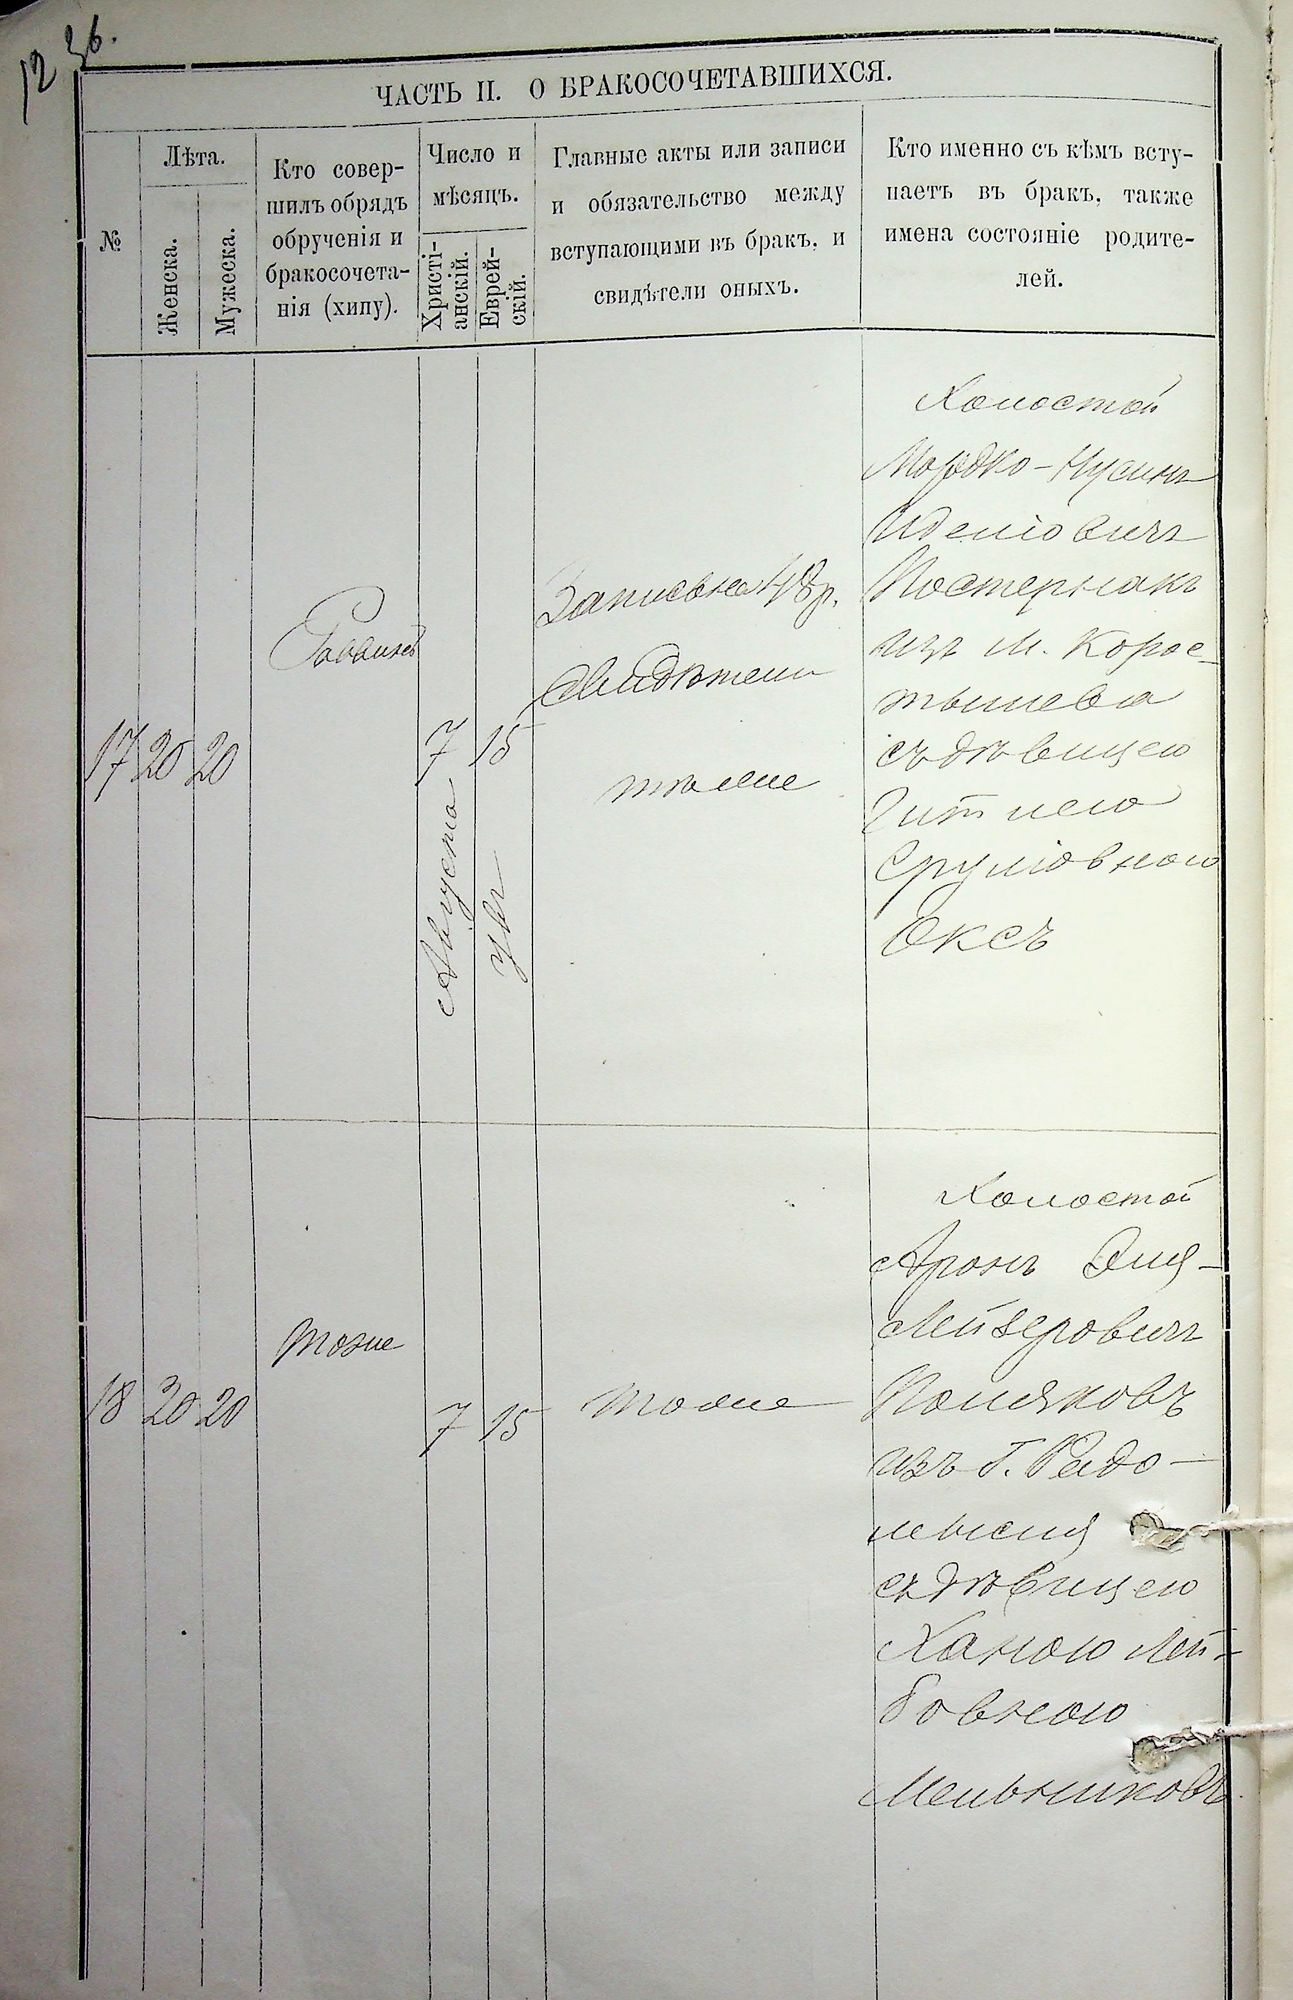 12 36.
ЧАСТЬ II. О БРАКОСОЧЕТАВШИХСЯ.
№
Лѣта.
Женска.
Мужеска.
Кто совер-
шилъ обрядъ
обрученія и
бракосочета-
нія (хипу).
Число и
мѣсяцъ.
Христі-
анскій.
Еврей-
скій.
Главные акты или записи
и обязательство между
вступающими въ бракъ, и
свидѣтели оныхъ.
Кто именно съ кѣмъ всту-
паетъ въ бракъ, также
имена состояніе родите-
лей.
17 20 20
Раввинъ
7 Августа
15
Запись на 48 р.
Свидѣтели
тѣ же
Холостой
Мордко-Нусинъ
Иделіовичъ
Постернакъ
изъ м. Корос-
тышева
съ дѣвицею
Гитлею
Сруліовною
Оксъ
18 20 20
Тоже
7
15
Тоже
Холостой
Аронъ Эля-
Лейзеровичъ
Поляковъ
изъ г. Радо-
мысля
съ дѣвицею
Ханою Лей-
бовною
Мельниковъ